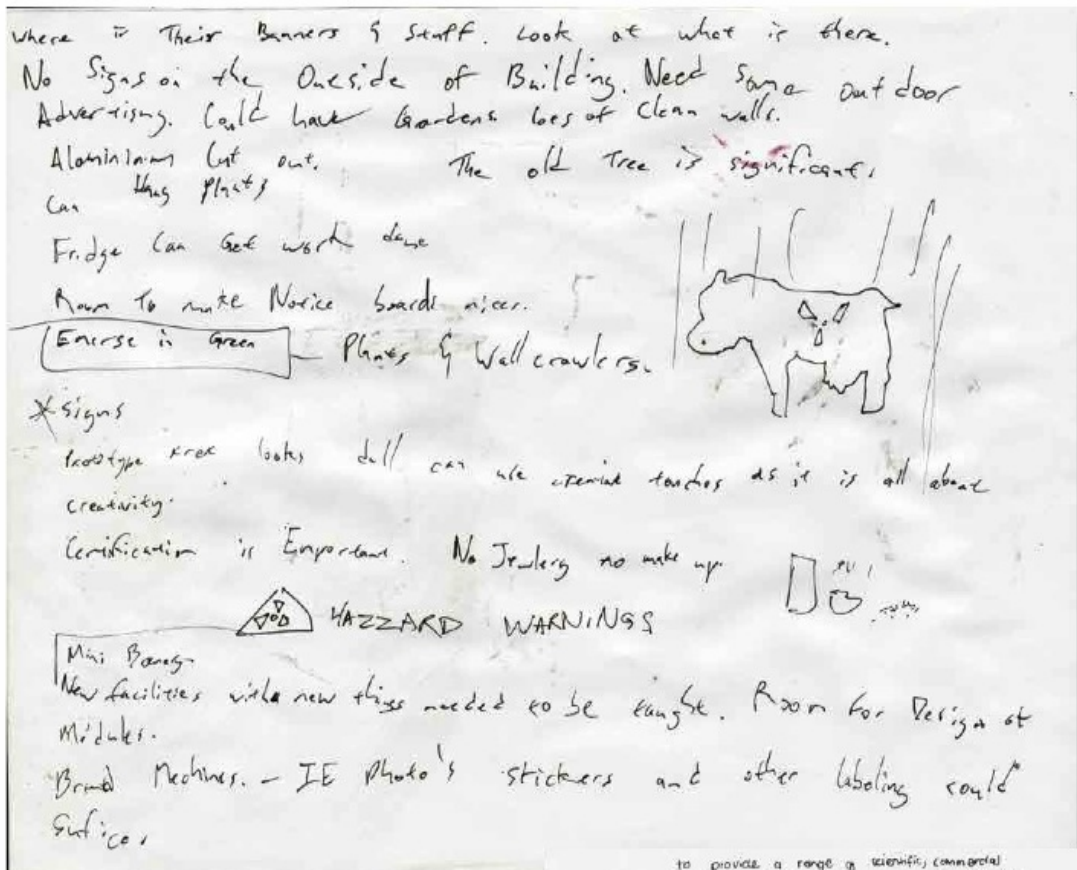 Where is Their Banners & Stuff. Look at what is there.
No Signs on the Outside of Building. Need Some outdoor
Advertising. Could have Gardens lots of Clean walls.
Alominium Cut out. The old Tree is significant.
Can Hang Plants
Fridge Can Get work done
Room to make Notice boards nicer.
Emerse in Green - Plants & Wall crawlers.
* Signs
Prototype area looks dull can use creative touches as it is all about
creativity.
Certification is Emportant. No Jewlery no make up.
HAZZARD WARNINGS
Mini
New facilities with new things needed to be taught. Room for Design of
Modules.
Brand Mechines. - IE Photo's stickers and other labeling could
Sufice.
to provide a range of scientific, commercial